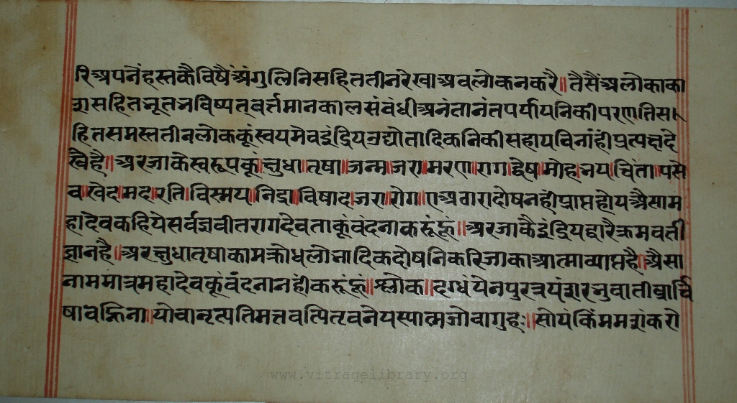 रिअपनेंहस्तकैविषैंअंगुलिनिसहिततीनरेखाअवलोकनकरै॥तैसैंअलोकाका
शसहितभूतभविष्यतवर्त्तमानकालसंबंधीअनंतानंतपर्यायनिकीपरणतिस
हितसमस्ततीनलोककूंस्वयमेवइंद्रियउद्योतादिकनिकीसहायविनांहीप्रत्यक्षदे
खैहै॥अरजाकेस्वरूपकूंक्षुधा।तृषा।जन्म।जरा।मरण।राग।द्वेष।मोह।भय।चिंता।पसे
व।खेद।मद।रति।विस्मय।निद्रा।विषाद।जरा।रोग।एअठारादोषनहीप्राप्तहोयअैसाम
हादेवकहियेसर्वज्ञवीतरागदेवताकूंवंदनाकरूंहूं॥अरजाकैइंद्रियद्वारैक्रमवर्ती
ज्ञानहै॥अरक्षुधातृषाकामक्रोधलोभादिकदोषनिकरिजाकाआत्माव्याप्तहै॥अैसा
नाममात्रमहादेवकूंवंदनानहींकरूंहूं॥श्लोक॥दग्धंयेनपुरत्रयंशरभुवातीव्रार्चि
षावह्निना॥योवानृत्यतिमत्तवत्पितृवनेयस्यात्मजोवागुहः॥सोयंकिंममशंकरो
www.vitragelibrary.org